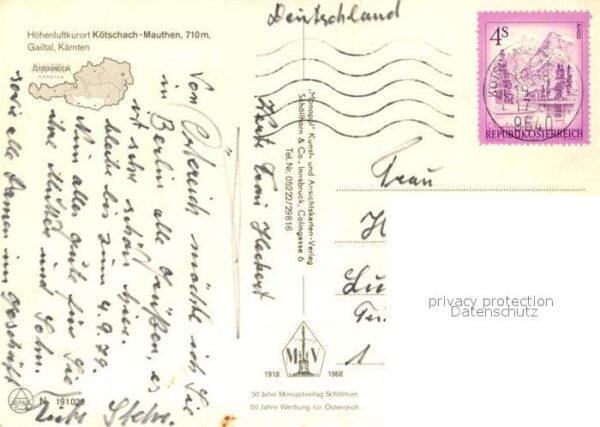 Höhenluftkurort Kötschach-Mauthen, 710 m,
Gailtal, Kärnten
KÄRNTEN
Deutschland
4 S
REPUBLIK ÖSTERREICH
9640
Von Österreich möchte ich Sie
in Berlin alle grüßen, es
ist sehr schön hier.
bleibe bis zum 4.9.79.
Nun alles gute für Sie
ihre Mutter und Sohn.
sowie alle Damen im Geschäft
"Monopol" Kunst- und Ansichtskarten-Verlag
Schöllhorn & Co., Innsbruck, Colingasse 6
Tel. Nr. 05222/29816
Frau
H
Lu
1
privacy protection
Datenschutz
M V
1918 1968
50 Jahre Monopolverlag Schöllhorn
50 Jahre Werbung für Österreich
N 191028